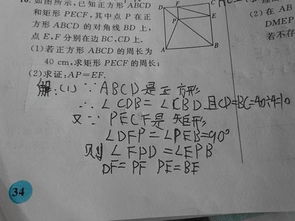 如图所示,已知正方形ABCD
和矩形PECF,其中点P在正
方形ABCD的对角线BD上,
点E,F分别在边BC,CD上.
(1)若正方形ABCD的周长为
40 cm,求矩形PECF的周长;
(2)求证:AP=EF.
A
D
P
F
B
E
C
(2)在AB
DEM
若不存
解:(1)∵ABCD是正方形
∴∠CDB=∠CBD,且CD=BC=40÷4=10
又∵PECF是矩形
∠DFP=∠PEB=90°
则∠FPD=∠EPB
DF=PF PE=BE
34